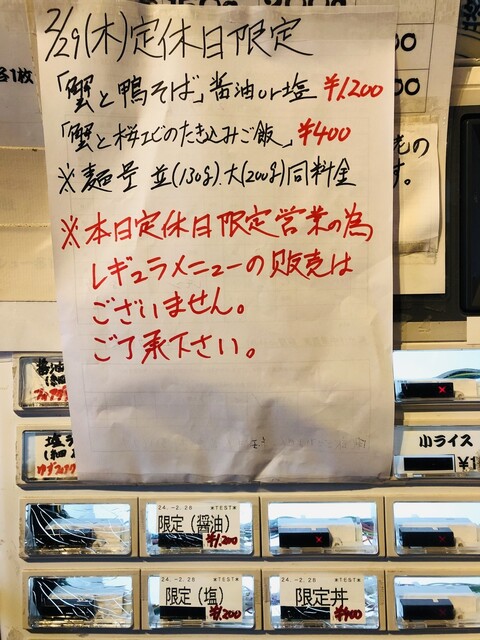 2/29(木)定休日限定
「蟹と鴨そば」醤油or塩 ¥1,200
「蟹と桜エビのたき込みご飯」¥400
※麺量 並(130g).大(200g)同料金
※本日定休日限定営業の為
レギュラメニューの販売は
ございません。
ご了承下さい。
各1枚
小ライス
24.-2.28 *TEST*
限定(醤油)
¥1,200
24.-2.28 *TEST*
限定(塩)
¥1,200
24.-2.28 *TEST*
限定丼
¥400